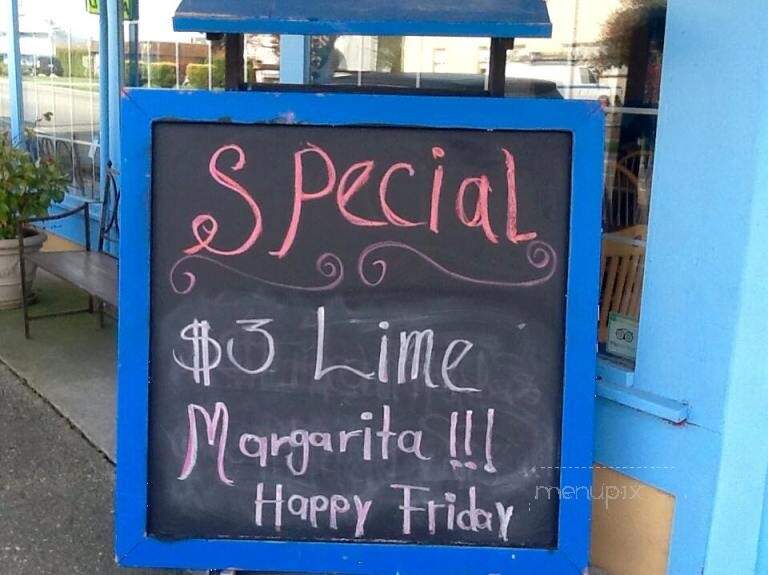 Special
$3 Lime
Margarita !!!
Happy Friday
menupix